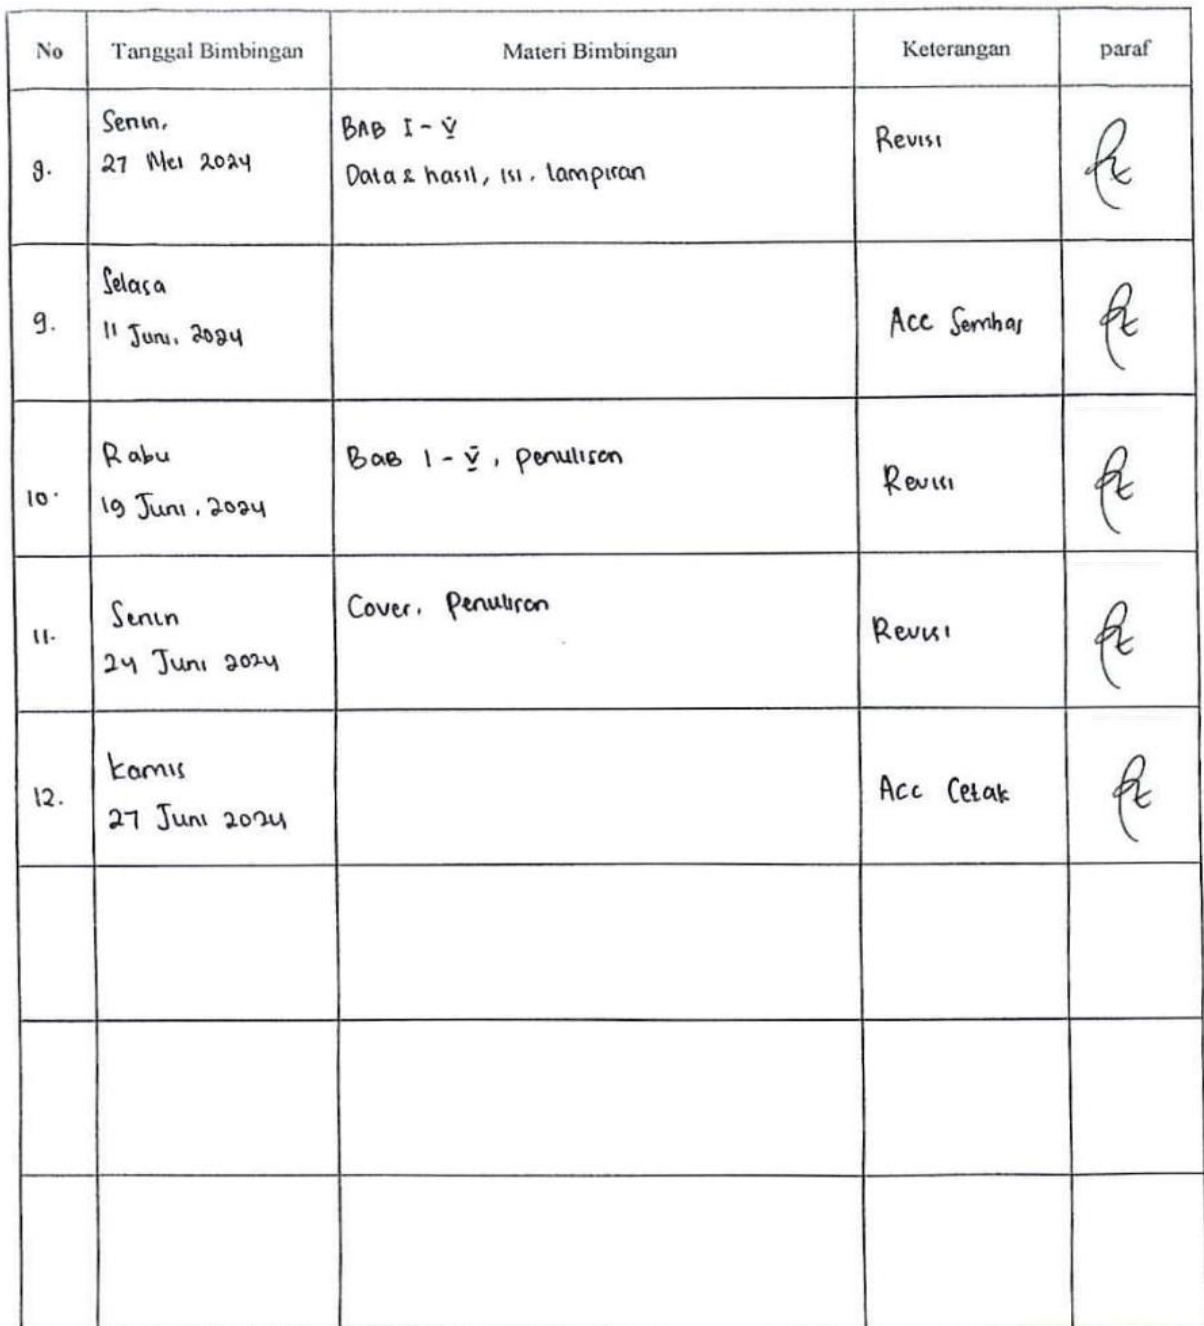 No Tanggal Bimbingan Materi Bimbingan Keterangan paraf
8. Senin, 27 Mei 2024 BAB I - V Revisi
Data & hasil, isi, lampiran
9. Selasa 11 Juni, 2024 Acc Semhas
10. Rabu 19 Juni, 2024 BaB I - V, penulisan Revisi
11. Senin 24 Juni 2024 Cover, Penulisan Revisi
12. Kamis 27 Juni 2024 Acc Cetak